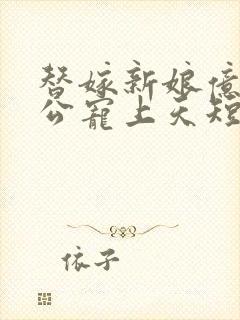 替嫁新娘億
公寵上天短
依子